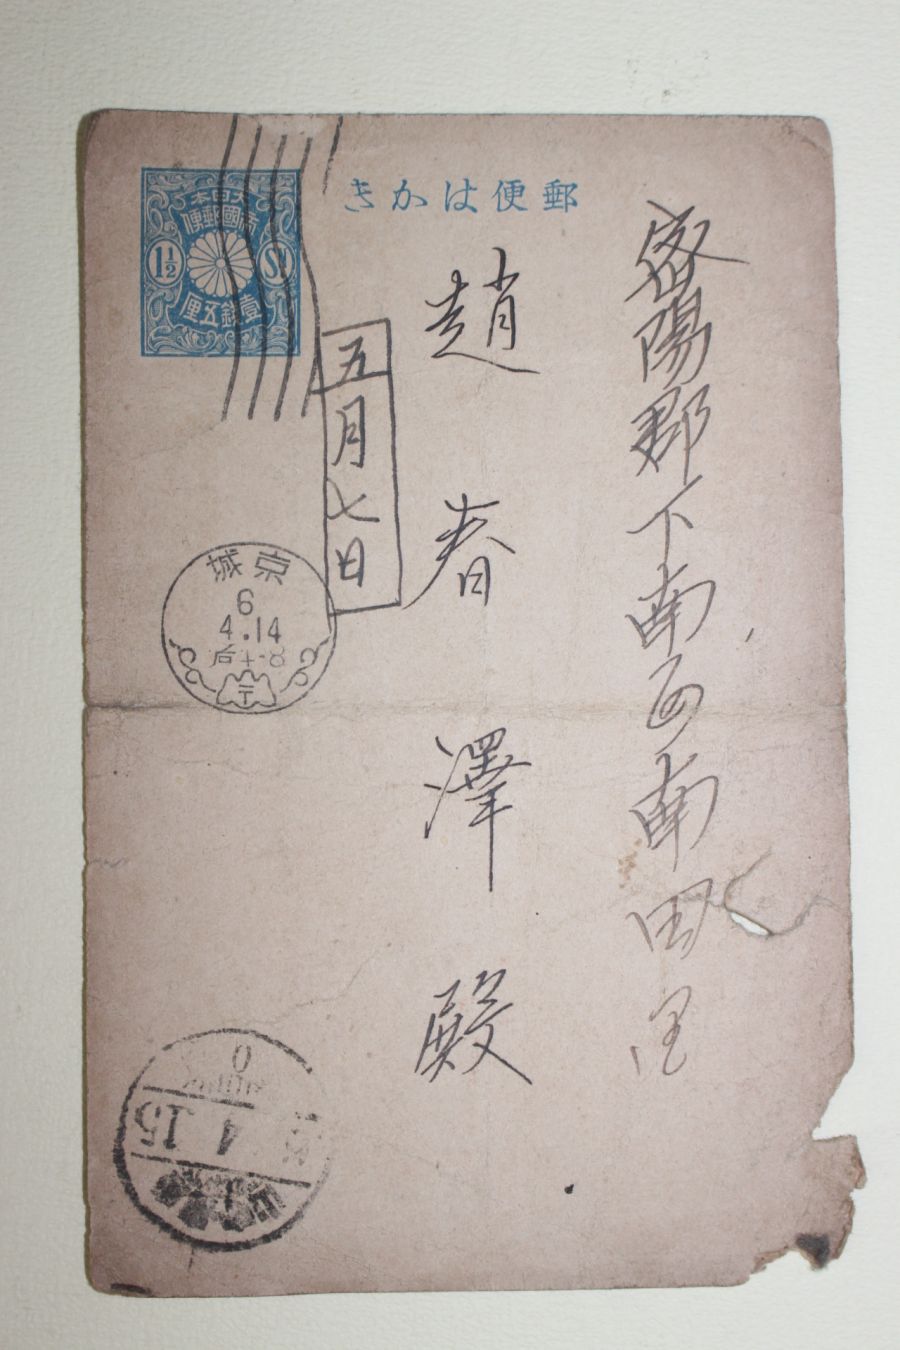 郵便はかき
大日本
帝國郵便
1½ Sn
壹錢五厘
密陽郡下南面南田里
趙春澤殿
五月七日
京城
6
4.14
后 8
4 15